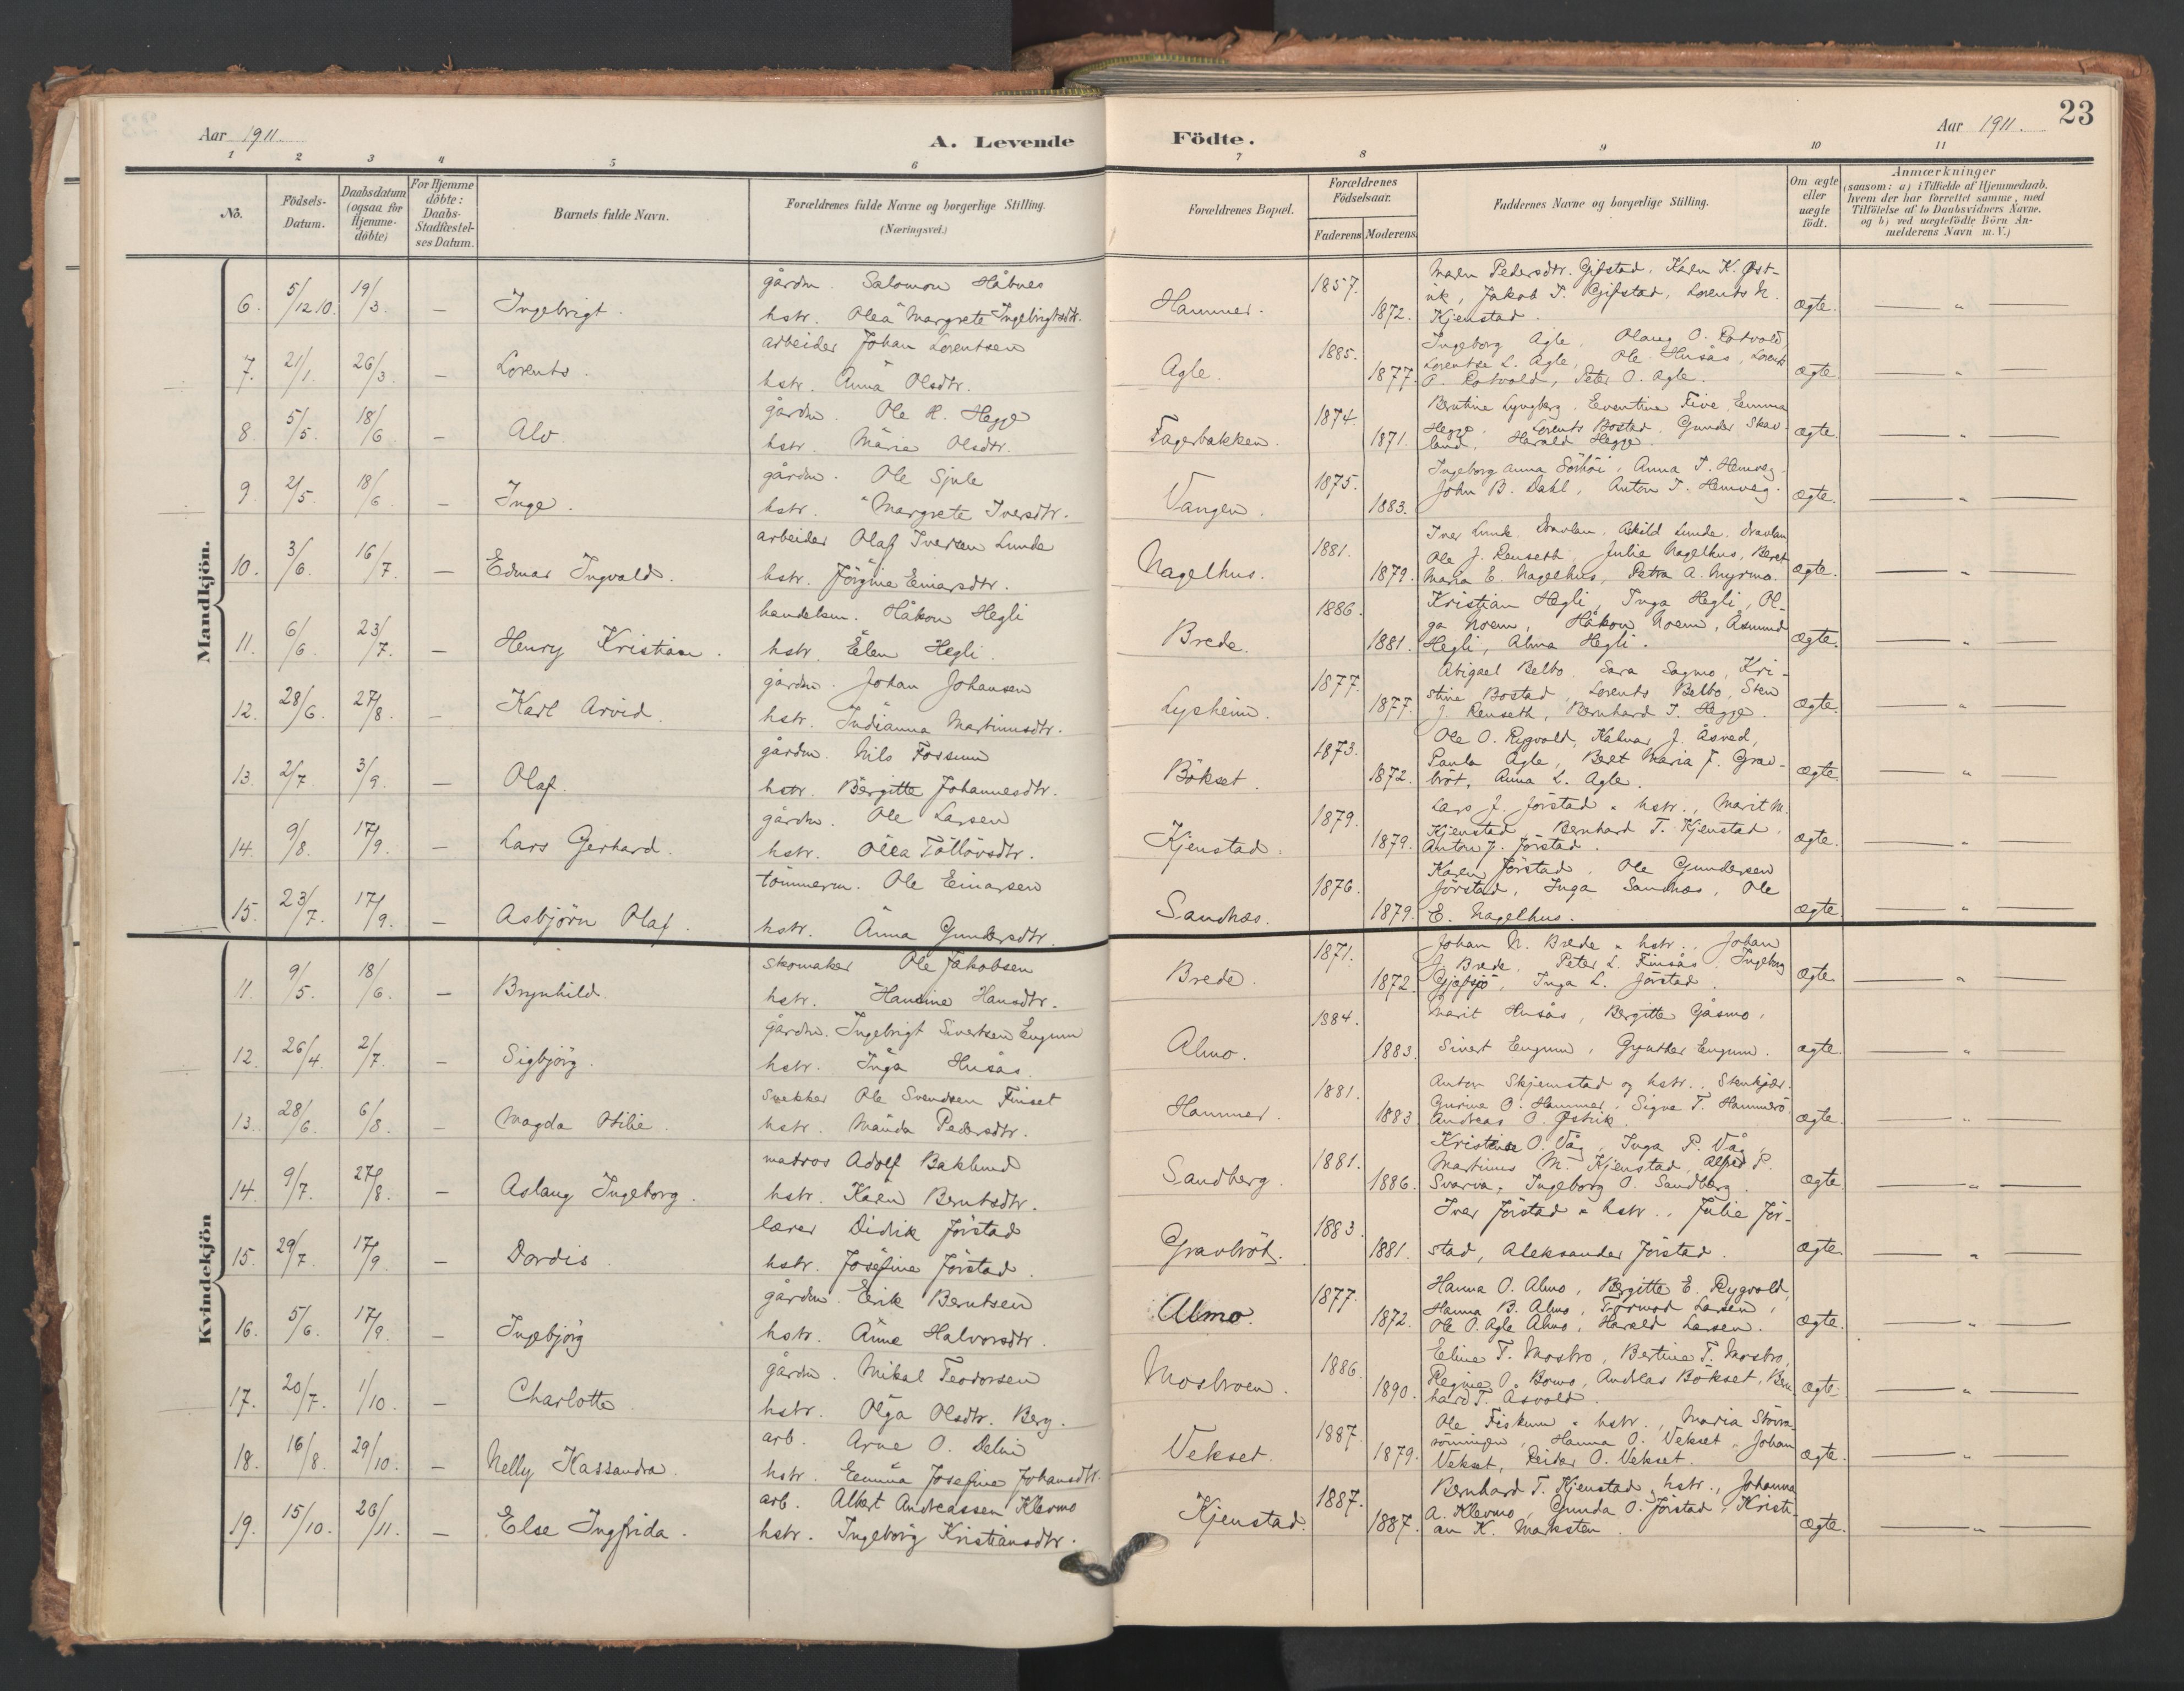 Aar 1911.
A. Levende Födte.
Aar 1911.
23
1 2 3 4 5 6 7 8 9 10 11
No.
Födsels-Datum.
Daabsdatum (ogsaa for Hjemme-döbte)
For Hjemme döbte: Daabs-Stadfæstel-ses Datum.
Barnets fulde Navn.
Forældrenes fulde Navne og borgerlige Stilling. (Næringsvei.)
Forældrenes Bopæl.
Forældrenes Födselsaar.
Faderens Moderens
Faddernes Navne og borgerlige Stilling.
Om ægte eller uægte födt.
Anmærkninger (saasom: a) i Tilfælde af Hjemmedaab, hvem der har forrettet samme, med Tilföielse af to Daabsvidners Navne, og b) ved uægtefödte Börn Anmelderens Navn m. V.)
Mandkjön.
6. 5/12 10. 19/3. — Ingebrigt. gårdm. Salomon Håbnes
hstr. Olea Margrete Ingebrigtsdtr. Hammer. 1857. 1872.
Maren Pedersdtr. Gifstad, Karen K. Øst-
vik, Jakob T. Gifstad, Lorents K.
Kjenstad. ægte. — " —
7. 21/1. 26/3. — Lorents. arbeider Johan Lorentsen
hstr. Anna Olsdtr. Agle. 1885. 1877.
Ingeborg Agle, Olaug O. Rotvold,
Lorentse L. Agle, Ole Husås, Lorents
O. Rotvold, Peter O. Agle. ægte — " —
8. 5/5. 18/6 — Alv gårdm. Ole H. Hegge
hstr. Marie Olsdtr. Fagerbakken. 1874. 1871.
Berntine Lyngberg, Eventine Five, Emma
Hegge, Lorents Bostad, Gunder Skav-
land, Harald Hegge. ægte — " —
9. 2/5. 18/6. — Inge. gårdm. Ole Sjule
hstr. Margrete Iversdtr. Vangen. 1875. 1883.
Ingeborg Anna Sörhöi, Anna T. Hemveg.
John B. Dahl, Anton T. Hemveg. ægte. — " —
10. 3/6. 16/7. — Edmar Ingvald. arbeider Olaf Iversen Lunde
hstr. Jörgine Einarsdtr. Nagelhus. 1881. 1879.
Iver Lunde, Askild Lunde,
Ole J. Renseth, Julie Nagelhus, Beret
Maria E. Nagelhus, Petra A. Myrmo. ægte. — " —
11. 6/6. 23/7. — Henry Kristian. handelsm. Håkon Hegli
hstr. Elen Hegli. Brede. 1886. 1881.
Kristian Hegli, Inga Hegli, Ol-
ga Noem, Håkon Noem, Asmund
Hegli, Alma Hegli. ægte. — " —
12. 28/6. 27/8. — Karl Arvid. gårdm. Johan Johansen
hstr. Indianna Martinusdtr. Lysheim. 1877. 1877.
Abigael Belbo, Sara Sagmo, Kri-
stine Bostad, Lorents Belbo, Sten
J. Renseth, Bernhard T. Hegge. ægte. — " —
13. 2/7. 3/9. — Olaf. gårdm. Nils Forsum
hstr. Bergitte Johannesdtr. Bökset. 1873. 1872.
Ole O. Rygvold, J. Åsved,
Paula Agle, Beret Maria F. Grav-
bröt, Anna L. Agle. ægte. — " —
14. 9/8. 17/9. — Lars Gerhard. gårdm. Ole Larsen
hstr. Olea Töllövsdtr. Kjenstad. 1879. 1879.
Lars J. Jörstad " hstr., Marit M.
Kjenstad, Bernhard T. Kjenstad,
Anton J. Jörstad. ægte. — " —
15. 23/7. 17/9. — Asbjörn Olaf. tömmerm. Ole Einarsen
hstr. Anna Gundersdtr. Sandnæs. 1876. 1879.
Karen Jörstad, Ole Gundersen
Jörstad, Inga Sandnæs, Ole
E. Nagelhus. ægte — " —
Kvindekjön
11. 9/5. 18/6. — Brynhild. skomaker Ole Jakobsen
hstr. Hansine Hansdtr. Brede. 1871. 1872.
Johan N. Brede " hstr., Johan
J. Brede, Peter L. Finsås, Ingeborg
Gjefsjö, Inga L. Jörstad. ægte — " —
12. 26/4. 2/7. — Sigbjörg. gårdm. Ingebrigt Sivertsen Engum
hstr. Inga Husås. Almo. 1884. 1883.
Marit Husås, Bergitte Gåsmo,
Sivert Engum, Gynther Engum. ægte. — " —
13. 28/6. 6/8. — Magda Otilie. snekker Ole Svendsen Finset
hstr. Manda Pedersdtr. Hammer. 1881. 1883
Anton Skjemstad og hstr., Stenkjær.
Gurine O. Hammer, Signe T. Hammerö.
Andreas O. Østvik. ægte. — " —
14. 9/7. 27/8. — Aslaug Ingeborg. matros Adolf Baklund
hstr. Karen Berntsdtr. Sandberg. 1881. 1886.
Kristine O. Våg, Inga P. Våg,
Martinus M. Kjenstad, Alfred P.
Svarva, Ingeborg O. Sandberg. ægte. — " —
15. 29/7. 17/9. — Dordis. lærer Didrik Jörstad
hstr. Josefine Jörstad. Gravbröt. 1883. 1881.
Iver Jörstad " hstr., Julie Jör-
stad, Aleksander Jörstad. ægte. — " —
16. 5/6. 17/9. — Ingebjörg gårdm. Erik Berntsen
hstr. Anne Halvorsdtr. Almo. 1877. 1872.
Hanna O. Almo, Bergitte E. Rygvold,
Hanna B. Almo, Tormod Larsen,
Ole O. Agle Almo, Harald Larsen. ægte. — " —
17. 20/7. 1/10. — Charlotte gårdm. Mikal Teodorsen
hstr. Olga Olsdtr. Berg. Mosbroen. 1886. 1890.
Eline T. Mostro, Bertine T. Mostro,
Regine O. Bomo, Andreas Bökset, Bern-
hard T. Åsvold. ægte. — " —
18. 16/8. 29/10. — Nelly Kassandra. arb. Arne O. Delin
hstr. Emma Josefine Johansdtr. Vekset. 1887. 1879.
Ole Fiskum " hstr., Maria
Hanna O. Vekset, Johan
Vekset, Reidar O. Vekset. ægte. — " —
19. 15/10. 26/11. — Else Ingfrida. arb. Albert Andreassen Klevmo
hstr. Ingeborg Kristiansdtr. Kjenstad. 1887. 1887.
Bernhard T. Kjenstad " hstr., Johanna
A. Klevmo, Gunda O. Jörstad, Kristi-
an K. Marksten. ægte. — " —